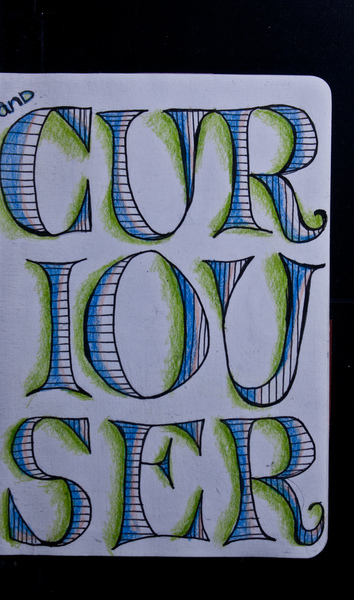 and
CUR
IOU
SER